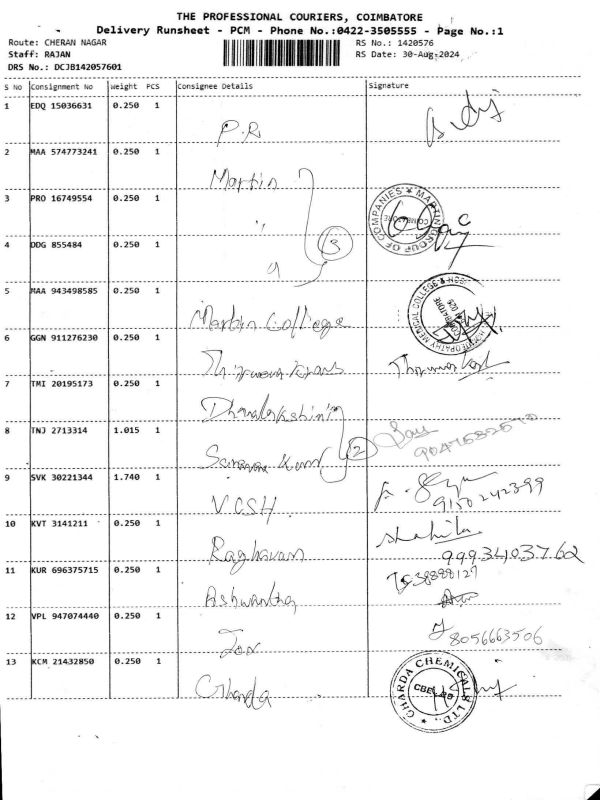 THE PROFESSIONAL COURIERS, COIMBATORE
Delivery Runsheet - PCM - Phone No.:0422-3505555 - Page No.:1
Route: CHERAN NAGAR RS No.: 1420576
Staff: RAJAN RS Date: 30-Aug-2024
DRS No.: DCJB142057601
S No Consignment No Weight PCS Consignee Details Signature
1 EDQ 15036631 0.250 1
P.R
2 MAA 574773241 0.250 1
Martin
3 PRO 16749554 0.250 1
"
MARTIN GROUP OF COMPANIES
COIMBATORE
4 DDG 855484 0.250 1
3
"
5 MAA 943498585 0.250 1
Martin College
HOMOEOPATHY MEDICAL COLLEGE & HOSPITAL
COIMBATORE
6 GGN 911276230 0.250 1
7 TMI 20195173 0.250 1
Dhanalakshini
8 TNJ 2713314 1.015 1
2
Saravana Kumar
9 SVK 30221344 1.740 1
V.C.S.H.
9150242399
10 KVT 3141211 0.250 1
Raghavan
9993403762
11 KUR 696375715 0.250 1
Ashwantha
12 VPL 947074440 0.250 1
Jax
8056663506
13 KCM 21432850 0.250 1
Gharda
GHARDA CHEMICALS LTD.,